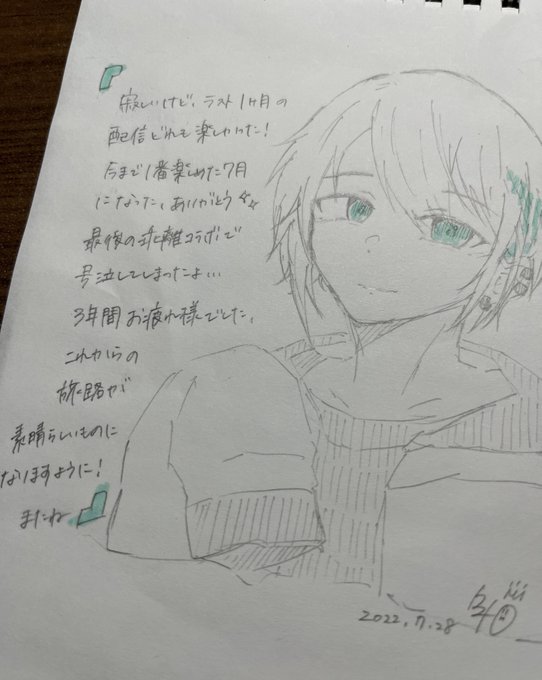 寂しいけど、ラスト1ヶ月の
配信どれも楽しかった!
今まで1番楽しめた7月
になった、ありがとう
最後の距離コラボで
号泣してしまったよ…
3年間お疲れ様でした、
これからの
旅路が
素晴らしいものに
なりますように!
またね
2022.7.28